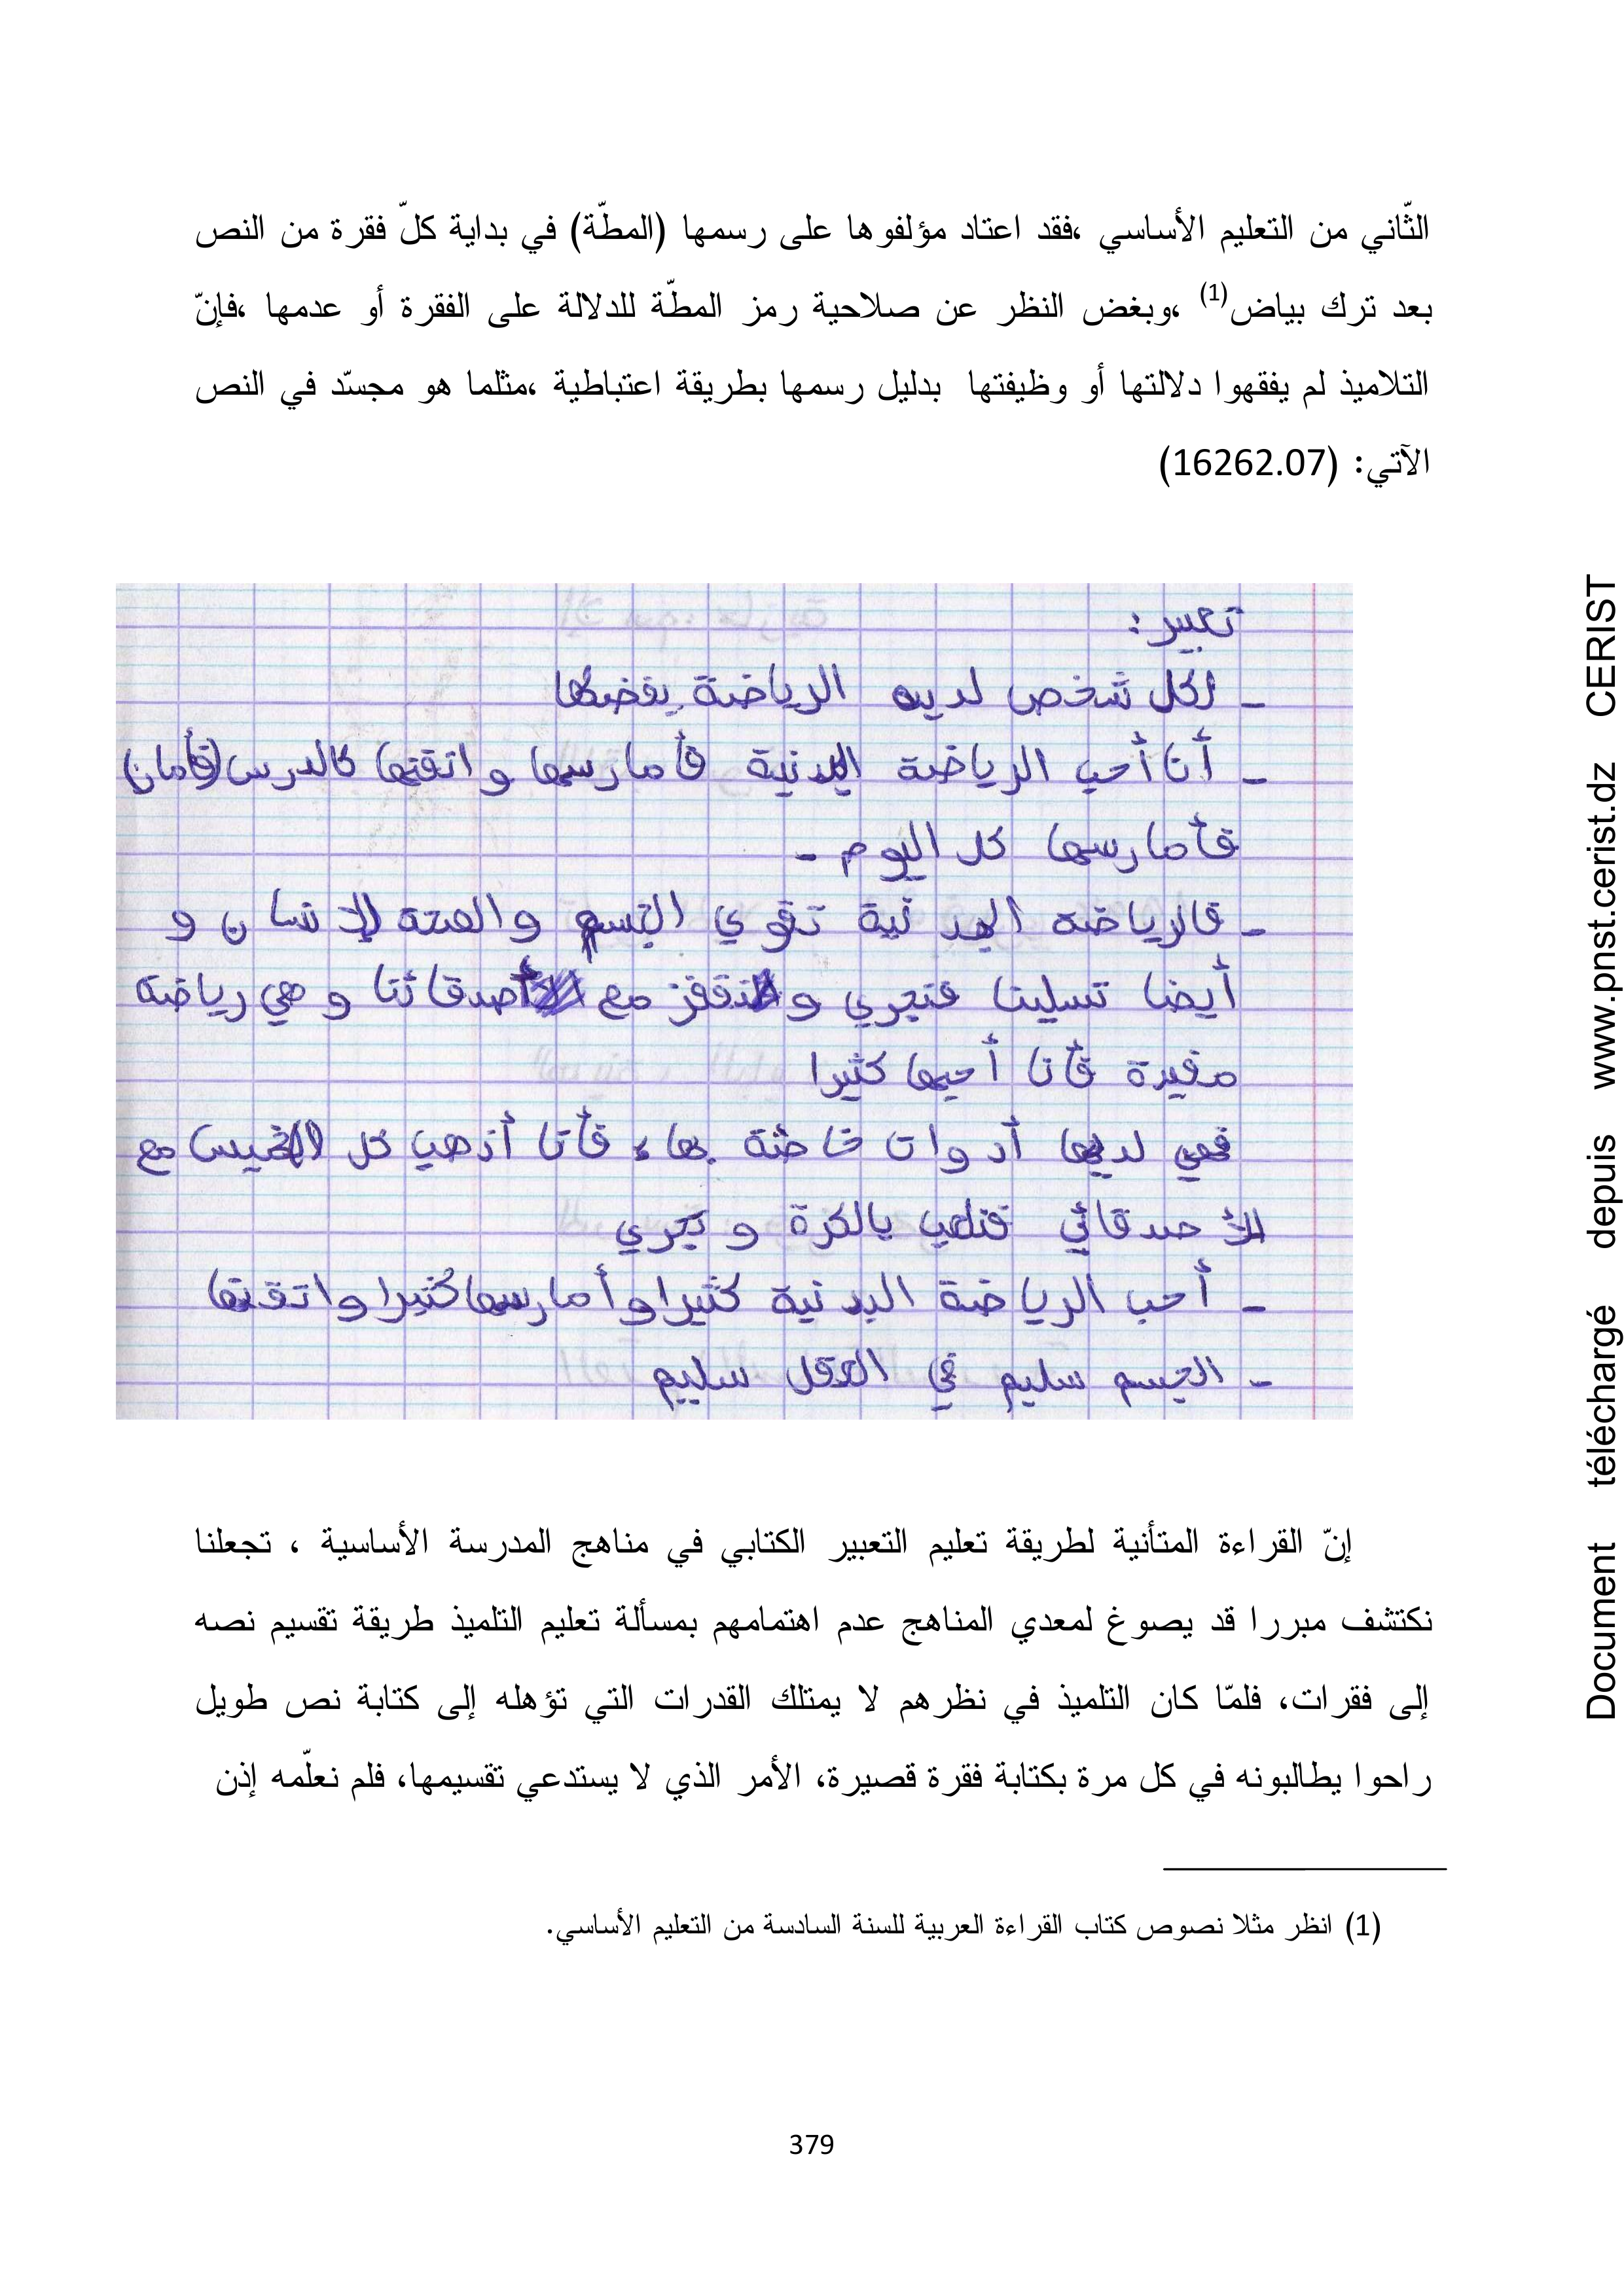 الثّاني من التعليم الأساسي ،فقد اعتاد مؤلفوها على رسمها (المطّة) في بداية كلّ فقرة من النص
بعد ترك بياض(1) ،وبغض النظر عن صلاحية رمز المطّة للدلالة على الفقرة أو عدمها ،فإنّ
التلاميذ لم يفقهوا دلالتها أو وظيفتها بدليل رسمها بطريقة اعتباطية ،مثلما هو مجسّد في النص
الآتي: (16262.07)
تعبير:
- لكل شخص لديه الرياضة يفضلها
- أنا أحب الرياضة البدنية فأمارسها و اتقنها كالدرس (فأمان)
فأمارسها كل اليوم -
- فالرياضة البدنية تقوي الجسم و الإنسان و
أيضا تسلينا فنجري و نقفز مع أصدقائنا و هي رياضة
مفيدة فأنا أحبها كثيرا
فهي لديها أدوات خاصة بها، فأنا أذهب كل الخميس مع
الأصدقائي فنلعب بالكرة و نجري
- أحب الرياضة البدنية كثيرا و أمارسها كثيرا و اتقنها
- الجسم سليم في العقل سليم
إنّ القراءة المتأنية لطريقة تعليم التعبير الكتابي في مناهج المدرسة الأساسية ، تجعلنا
نكتشف مبررا قد يصوغ لمعدي المناهج عدم اهتمامهم بمسألة تعليم التلميذ طريقة تقسيم نصه
إلى فقرات، فلمّا كان التلميذ في نظرهم لا يمتلك القدرات التي تؤهله إلى كتابة نص طويل
راحوا يطالبونه في كل مرة بكتابة فقرة قصيرة، الأمر الذي لا يستدعي تقسيمها، فلم نعلّمه إذن
(1) انظر مثلا نصوص كتاب القراءة العربية للسنة السادسة من التعليم الأساسي.
379
Document téléchargé depuis www.pnst.cerist.dz CERIST